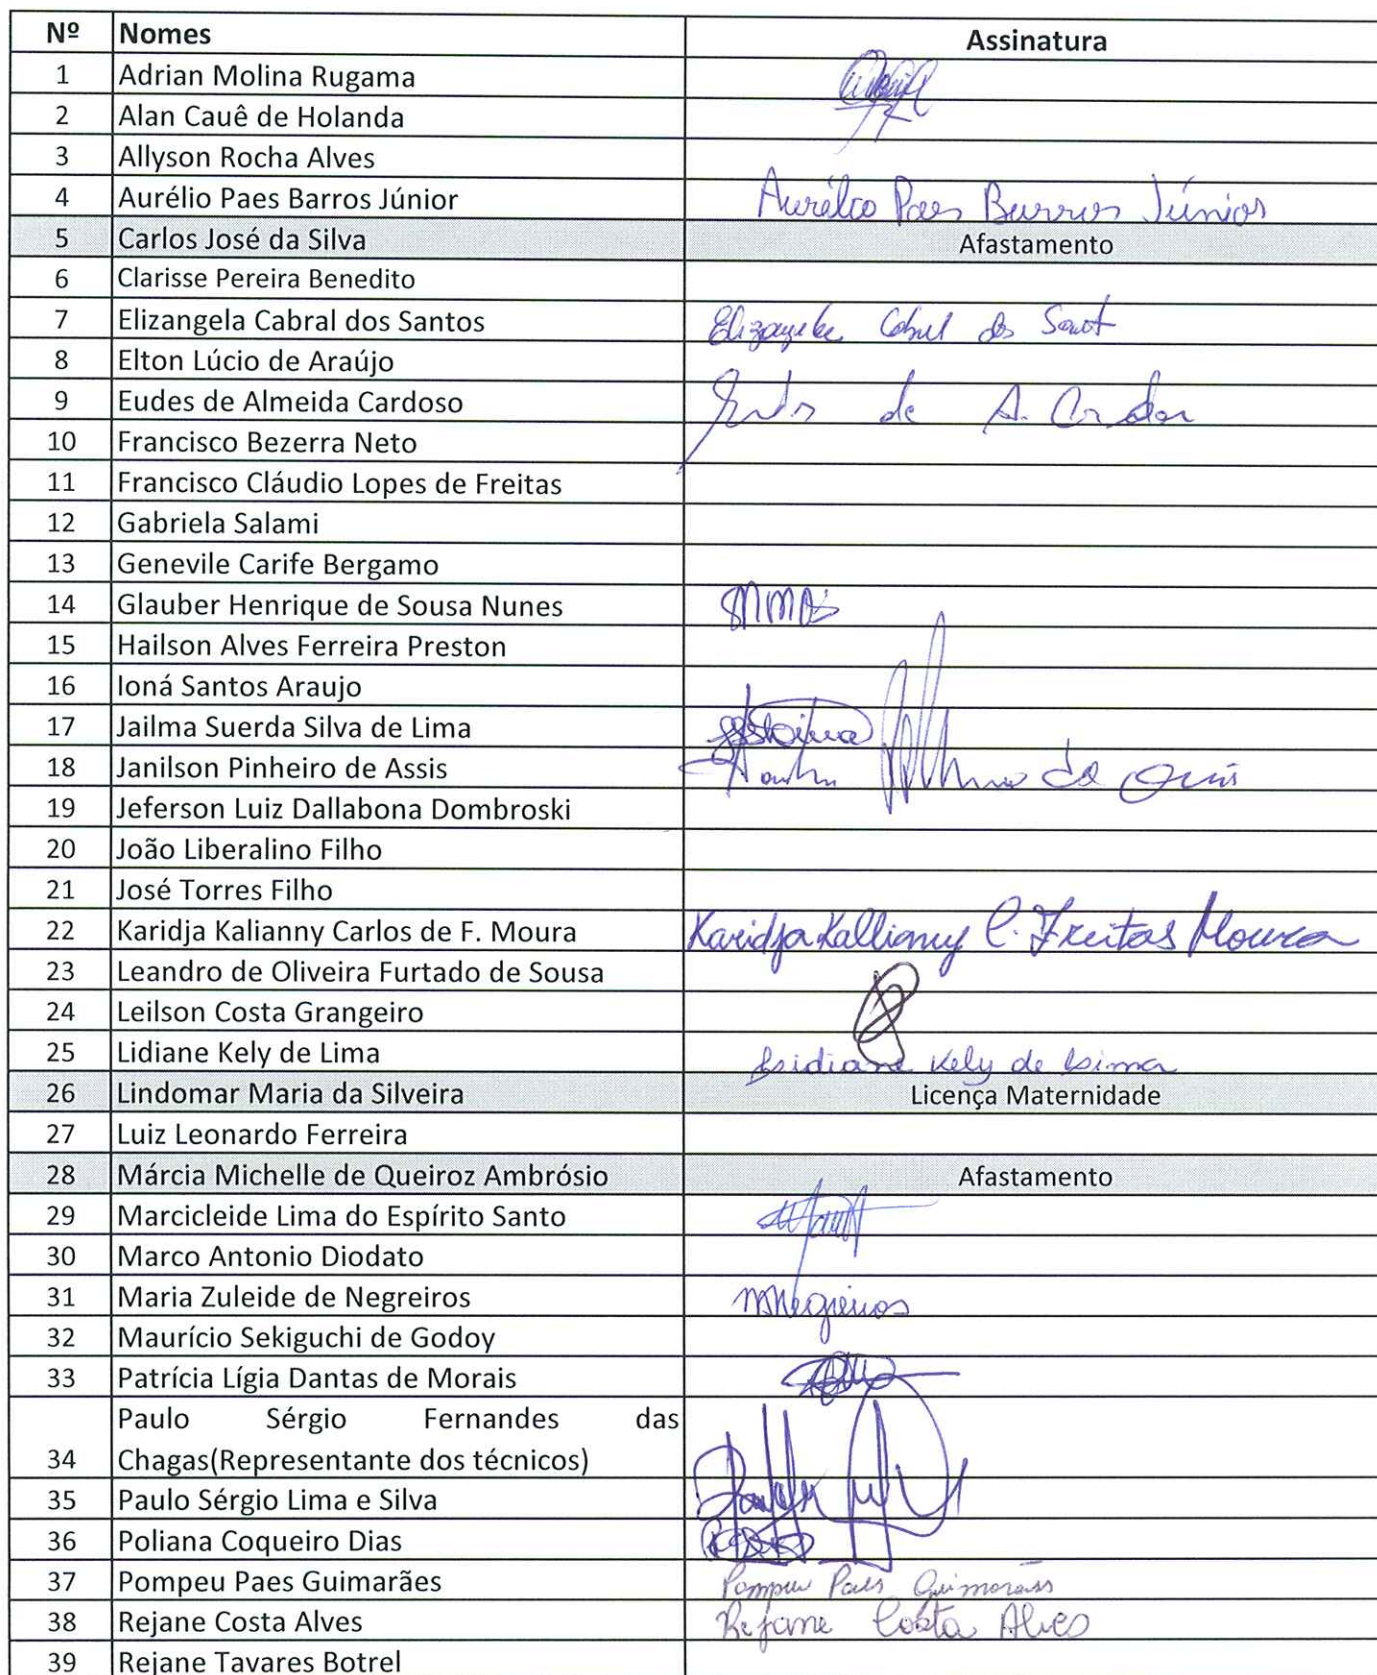 Nº Nomes Assinatura
1 Adrian Molina Rugama
2 Alan Cauê de Holanda
3 Allyson Rocha Alves
4 Aurélio Paes Barros Júnior Aurélio Paes Barros Júnior
5 Carlos José da Silva Afastamento
6 Clarisse Pereira Benedito
7 Elizangela Cabral dos Santos
8 Elton Lúcio de Araújo
9 Eudes de Almeida Cardoso de A.
10 Francisco Bezerra Neto
11 Francisco Cláudio Lopes de Freitas
12 Gabriela Salami
13 Genevile Carife Bergamo
14 Glauber Henrique de Sousa Nunes
15 Hailson Alves Ferreira Preston
16 Ioná Santos Araujo
17 Jailma Suerda Silva de Lima
18 Janilson Pinheiro de Assis
19 Jeferson Luiz Dallabona Dombroski
20 João Liberalino Filho
21 José Torres Filho
22 Karidja Kalianny Carlos de F. Moura Karidja Kallianny C. Freitas Moura
23 Leandro de Oliveira Furtado de Sousa
24 Leilson Costa Grangeiro
25 Lidiane Kely de Lima Lidiane Kely de Lima
26 Lindomar Maria da Silveira Licença Maternidade
27 Luiz Leonardo Ferreira
28 Márcia Michelle de Queiroz Ambrósio Afastamento
29 Marcicleide Lima do Espírito Santo
30 Marco Antonio Diodato
31 Maria Zuleide de Negreiros
32 Maurício Sekiguchi de Godoy
33 Patrícia Lígia Dantas de Morais
Paulo Sérgio Fernandes das
34 Chagas(Representante dos técnicos)
35 Paulo Sérgio Lima e Silva
36 Poliana Coqueiro Dias
37 Pompeu Paes Guimarães Pompeu Paes Guimarães
38 Rejane Costa Alves Rejane Costa Alves
39 Rejane Tavares Botrel